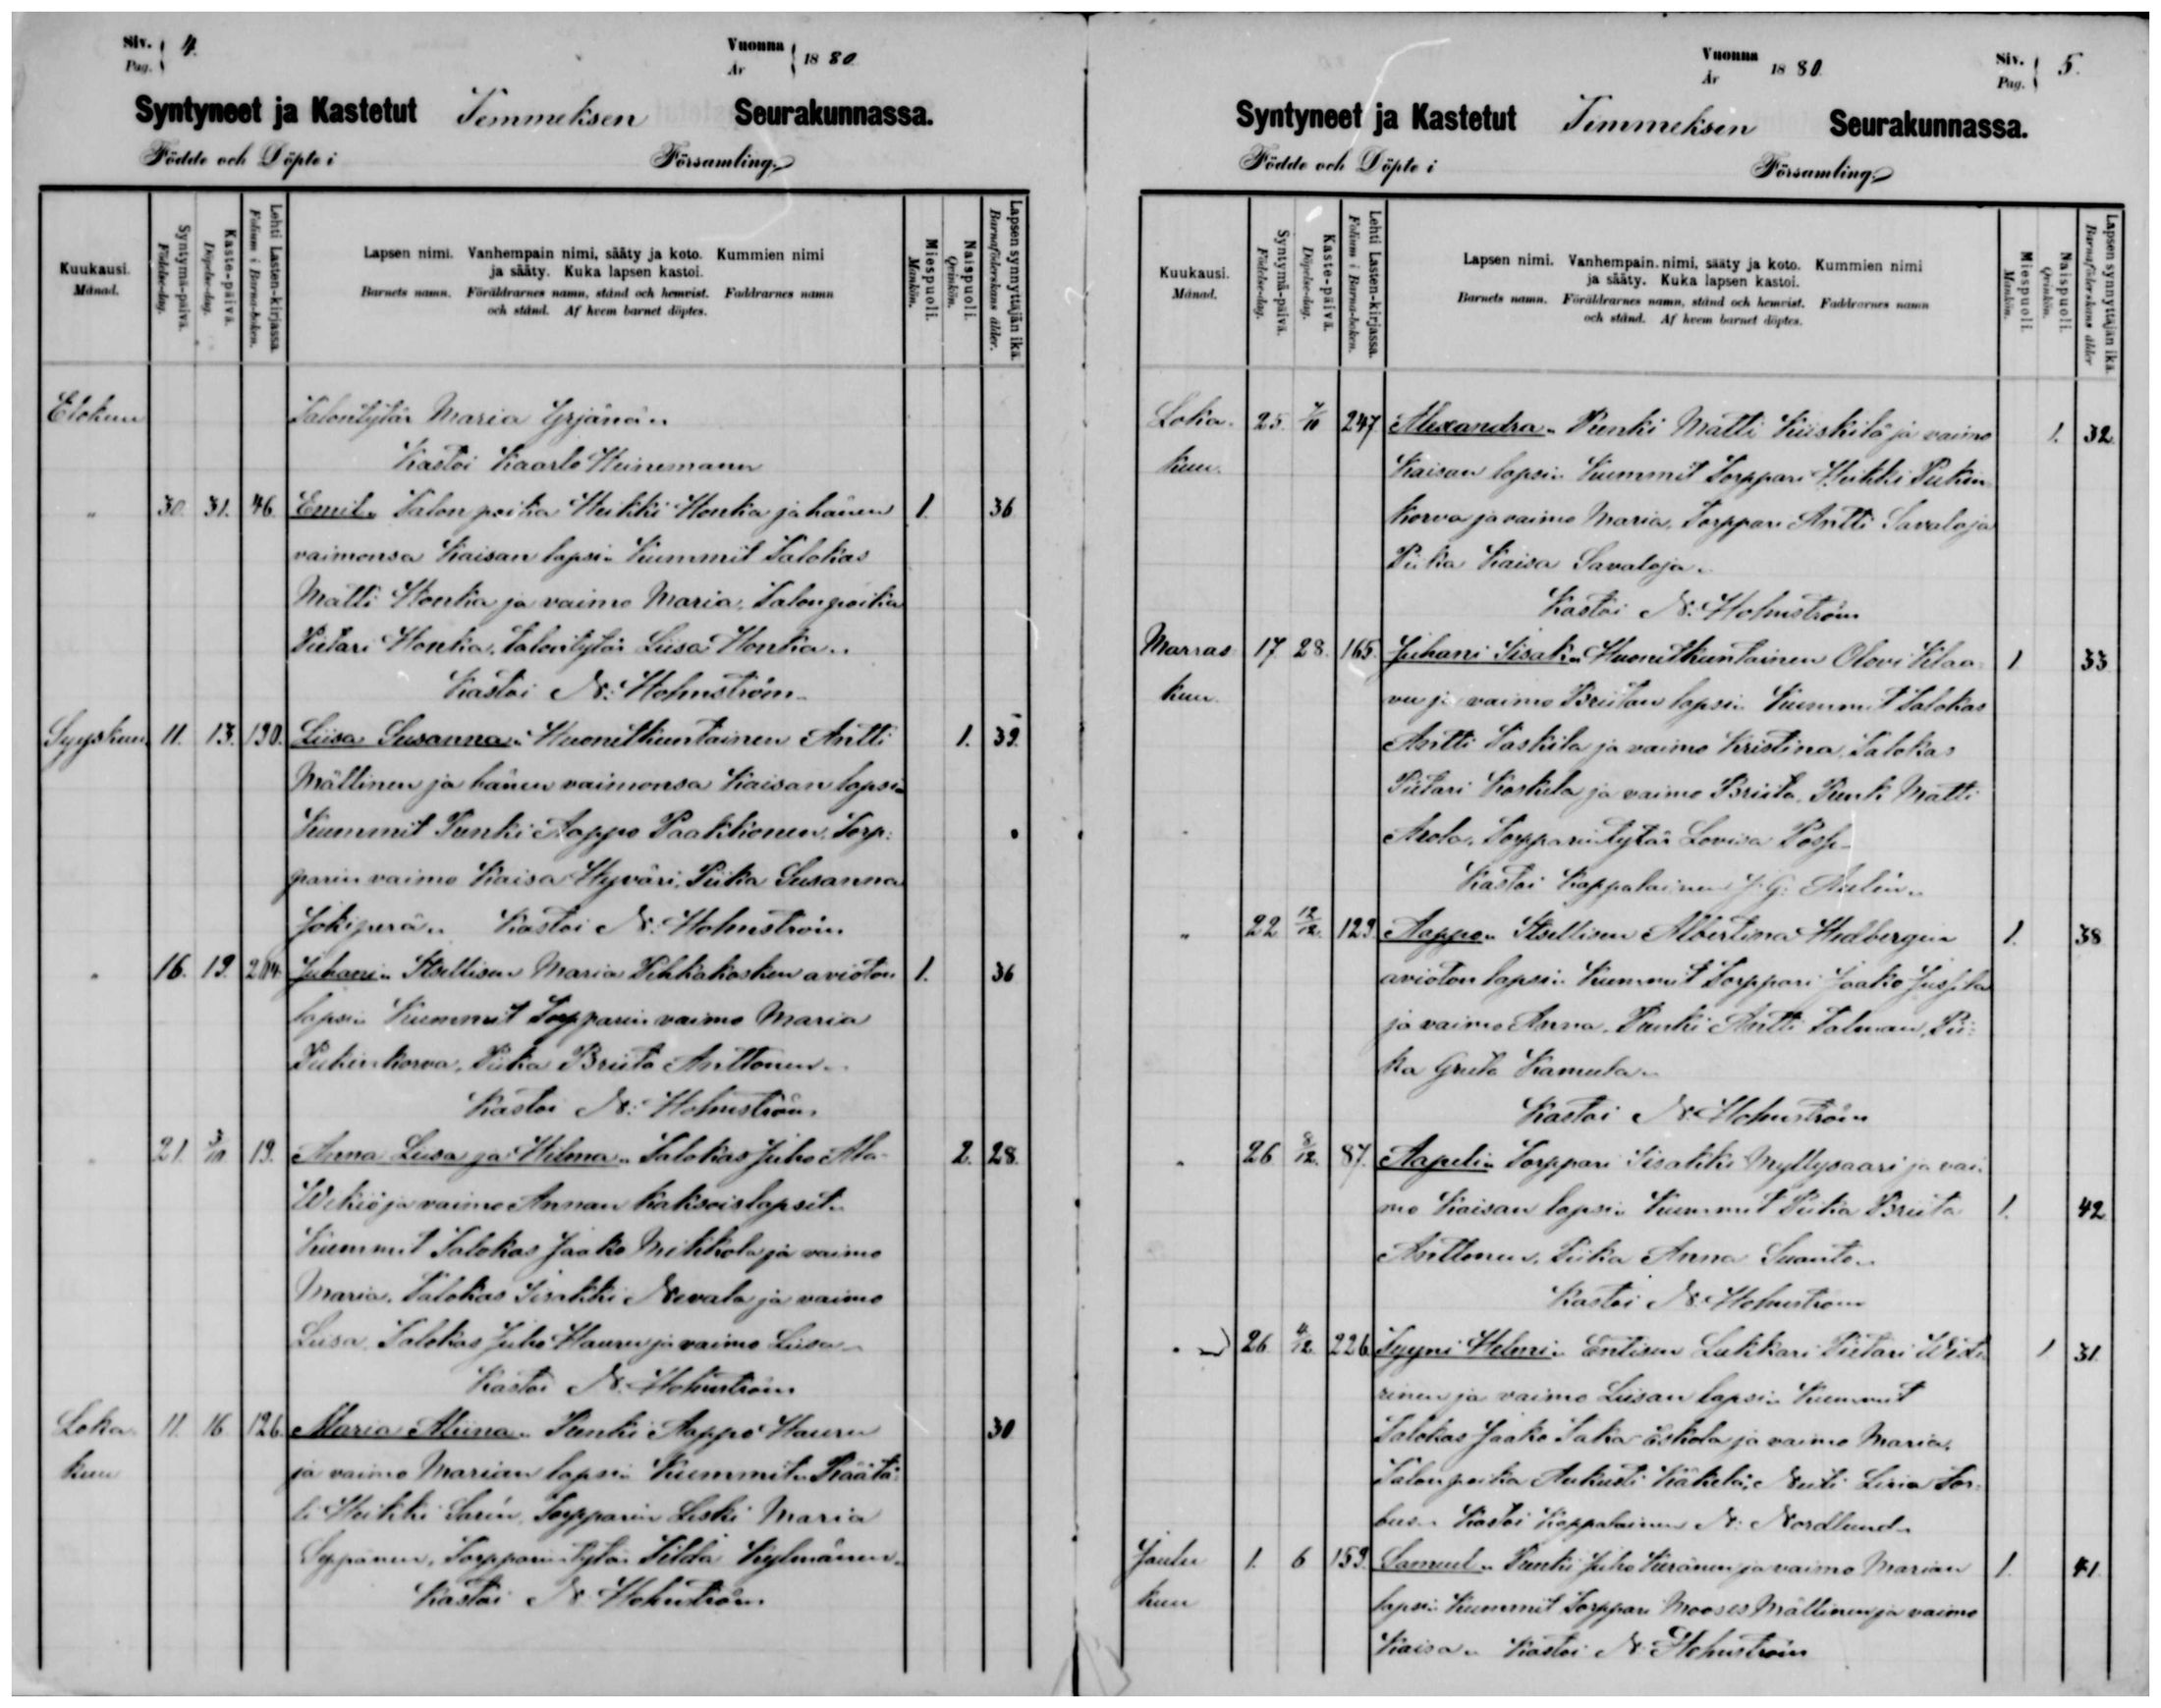 Siv. Pag. 4.
Vuonna År 1880.
Syntyneet ja Kastetut Temmeksen Seurakunnassa.
Födde och Döpte i Församling.
Kuukausi. Månad.
Syntymä-päivä. Födelse-dag.
Kaste-päivä. Döpelse-dag.
Lehti Lasten-kirjassa. Folium i Barna-boken.
Lapsen nimi. Vanhempain nimi, sääty ja koto. Kummien nimi
ja sääty. Kuka lapsen kastoi.
Barnets namn. Föräldrarnes namn, stånd och hemvist. Faddrarnes namn
och stånd. Af hvem barnet döptes.
Miespuoli. Mankön.
Naispuoli. Qvinkön.
Lapsen synnyttäjän ikä. Barnaföderskans ålder.
Elokuu Talontytär Maria Yrjänä..
Kastoi Kaarlo Heinemann
" 30. 31. 46. Emil.. Talonpoika Heikki Honka ja hänen 1. 36
vaimonsa Kaisan lapsi.. Kummit Talokas
Matti Honka ja vaimo Maria, Talonpoika
Pietari Honka, Talontytär Liisa Honka..
Kastoi N: Holmström
Syyskuu 11. 13. 190. Liisa Susanna.. Huonetkuntainen Antti 1. 39.
Mällinen ja hänen vaimonsa Kaisan lapsi..
Kummit Renki Aappo Paakkonen, Torp-
parin vaimo Kaisa Hyväri, Piika Susanna
Jokiperä.. Kastoi N: Holmström
" 16. 19. 204. Juhani.. Itsellisen Maria Pehkakosken avioton 1. 36
lapsi.. Kummit Torpparin vaimo Maria
Pukinkorva, Piika Briita Anttonen..
Kastoi N: Holmström
" 21. 3/10 19. Anna Liisa ja Hilma.. Talokas Juho Ala- 2. 28.
Wekiö ja vaimo Annan kaksoislapset..
Kummit Talokas Jaako Mikkola ja vaimo
Maria, Talokas Iisakki Nevala ja vaimo
Liisa, Talokas Juho Hauru ja vaimo Liisa..
Kastoi N: Holmström
Loka- 11. 16 126. Maria Miina.. Renki Aappo Hauru 30
kuu ja vaimo Marian lapsi.. Kummit.. Räätä-
li Heikki Sarin, Torpparin Leski Maria
Seppänen, Torpparintytär Tilda Kylmänen..
Kastoi N: Holmström
Vuonna År 1880.
Siv. Pag. 5.
Syntyneet ja Kastetut Temmeksen Seurakunnassa.
Födde och Döpte i Församling.
Kuukausi. Månad.
Syntymä-päivä. Födelse-dag.
Kaste-päivä. Döpelse-dag.
Lehti Lasten-kirjassa. Folium i Barna-boken.
Lapsen nimi. Vanhempain nimi, sääty ja koto. Kummien nimi
ja sääty. Kuka lapsen kastoi.
Barnets namn. Föräldrarnes namn, stånd och hemvist. Faddrarnes namn
och stånd. Af hvem barnet döptes.
Miespuoli. Mankön.
Naispuoli. Qvinkön.
Lapsen synnyttäjän ikä. Barnaföderskans ålder
Loka- 25. 247 Alexandra.. Renki Matti Kiiskilä ja vaimo 1. 32.
kuu. Kaisan lapsi.. Kummit Torppari Heikki Pukin-
korva ja vaimo Maria, Torppari Antti Savaloja
Piika Kaisa Savaloja..
Kastoi N: Holmström
Marras- 17. 28. 165. Juhani Iisak.. Huonetkuntainen Olovi Klaa- 1 33
kuu. vu ja vaimo Briitan lapsi.. Kummit Talokas
Antti Kaskila ja vaimo Kristina, Talokas
Pietari Koskela ja vaimo Briita, Renk. Matti
Arola, Torpparintytär Lovisa
Kastoi Kappalainen J. G.
" 22 12/12. 129. Aappo.. Itsellisen Albertina Hedbergin 1. 38
avioton lapsi.. Kummit Torppari Jaako
ja vaimo Anna, Renki Antti Salman, Pii-
ka Greta Kamula..
Kastoi N: Holmström
" 26 8/12. 87. Aapeli.. Torppari Iisakki Myllysaari ja vai-
mo Kaisan lapsi.. Kummit Piika Briita 1. 42
Anttonen, Piika Anna Suanto..
Kastoi N: Holmström
" 26 4/12. 226. Syyni Helmi.. Entisen Lukkari Pietari 1 31.
rinen ja vaimo Liisan lapsi.. Kummit
Talokas Jaako Taka-Eskola ja vaimo Maria,
Talonpoika Aukusti Käkelä, Neiti Livia For-
bus.. Kastoi Kappalainen N: Nordlund..
Joulu- 1. 6 159. Samuel.. Renki Juho Kieränen ja vaimo Marian 1. 41.
kuu lapsi.. Kummit Torppari Mooses Mällinen ja vaimo
Kaisa.. Kastoi N: Holmström